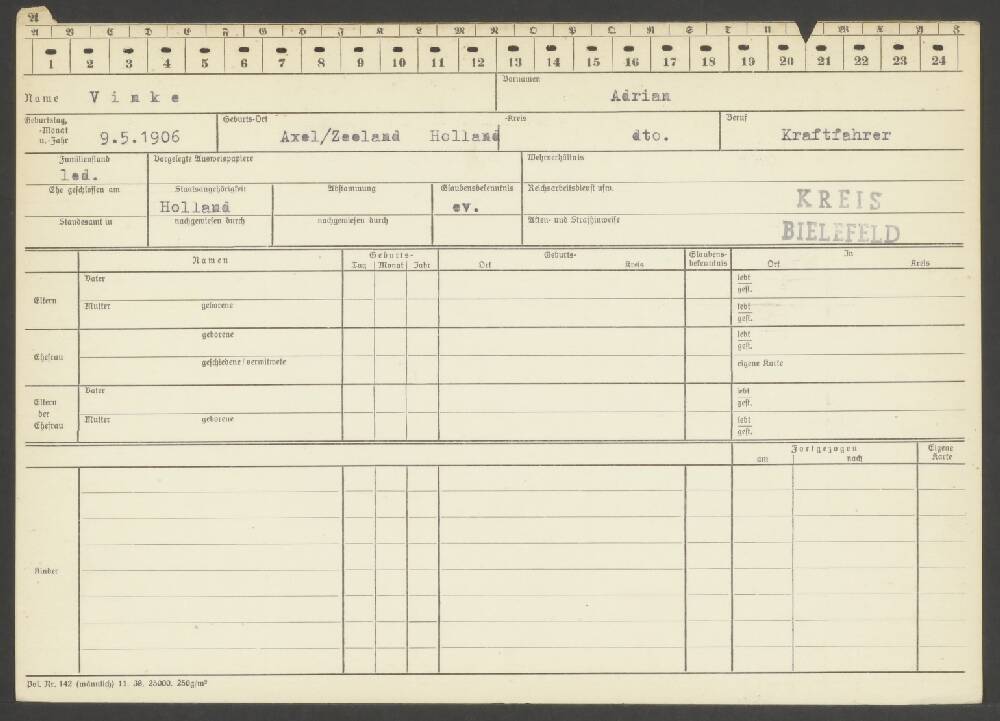 A
A B C D E F G H J K L M N O P Q R S T U W X Y Z
1 2 3 4 5 6 7 8 9 10 11 12 13 14 15 16 17 18 19 20 21 22 23 24
Name Vinke Vornamen Adrian
Geburtstag, -Monat u.-Jahr 9.5.1906 Geburts-Ort Axel/Zeeland Holland -Kreis dto. Beruf Kraftfahrer
Familienstand led. Vorgelegte Ausweispapiere Wehrverhältnis
Ehe geschlossen am Staatsangehörigkeit Holland Abstammung Glaubensbekenntnis ev. Reichsarbeitsdienst usw. KREIS
Standesamt in nachgewiesen durch nachgewiesen durch Akten- und Strafhinweise BIELEFELD
Namen Geburts- Geburts- Glaubens- In
Tag Monat Jahr Ort Kreis bekenntnis Ort Kreis
Eltern Vater lebt
gest.
Mutter geborene lebt
gest.
Ehefrau geborene lebt
gest.
geschiedene / verwitwete eigene Karte
Eltern der Ehefrau Vater lebt
gest.
Mutter geborene lebt
gest.
Fortgezogen Eigene
am nach Karte
Kinder
Bol. Nr. 142 (männlich) 11. 38. 25000. 250g/m²